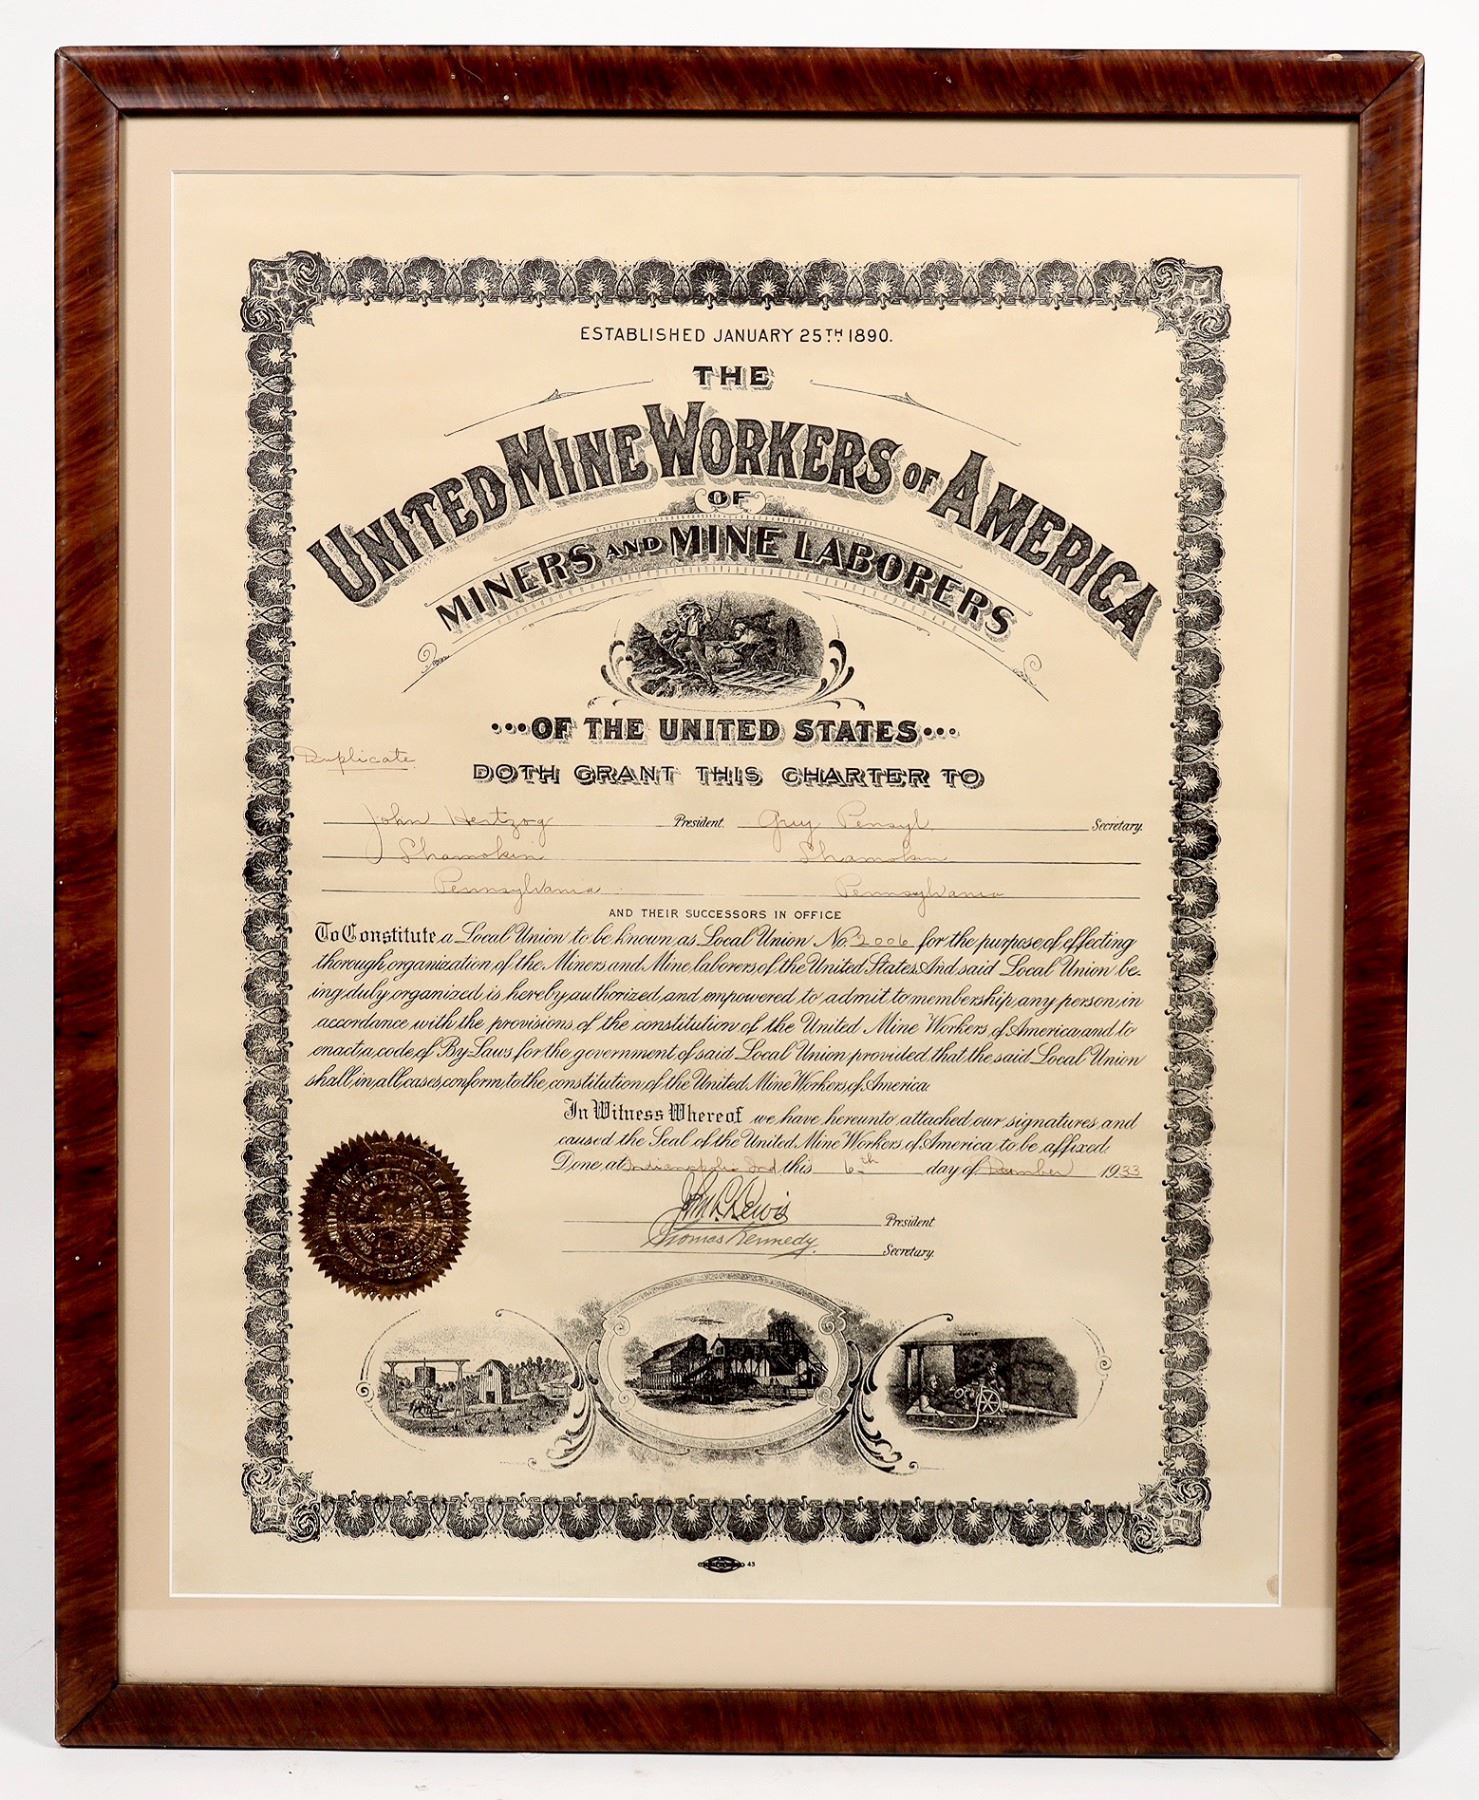 ESTABLISHED JANUARY 25TH 1890.
THE
UNITED MINE WORKERS OF AMERICA
OF
MINERS AND MINE LABORERS
OF THE UNITED STATES
Duplicate
DOTH GRANT THIS CHARTER TO
John Hertzog President Guy Pensyl Secretary.
Shamokin Shamokin
Pennsylvania Pennsylvania
AND THEIR SUCCESSORS IN OFFICE
To Constitute a Local Union to be known as Local Union No. 2006 for the purpose of effecting
thorough organization of the Miners and Mine laborers of the United States And said Local Union be-
ing duly organized is hereby authorized and empowered to admit to membership any person in
accordance with the provisions of the constitution of the United Mine Workers of America and to
enact a code of By-Laws for the government of said Local Union provided that the said Local Union
shall in all cases conform to the constitution of the United Mine Workers of America.
In Witness Whereof we have hereunto attached our signatures and
caused the Seal of the United Mine Workers of America to be affixed.
Done at Indianapolis Ind this 6th day of December 1933
John L Lewis President
Thomas Kennedy. Secretary.
43